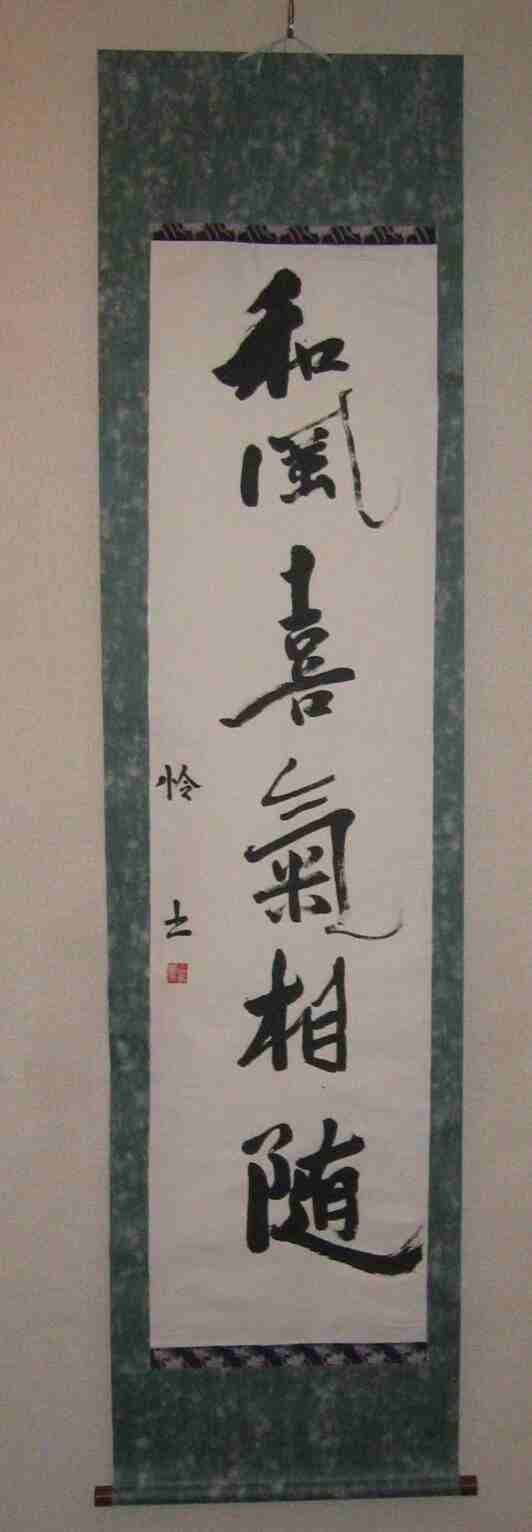 和風喜氣相随
怜士